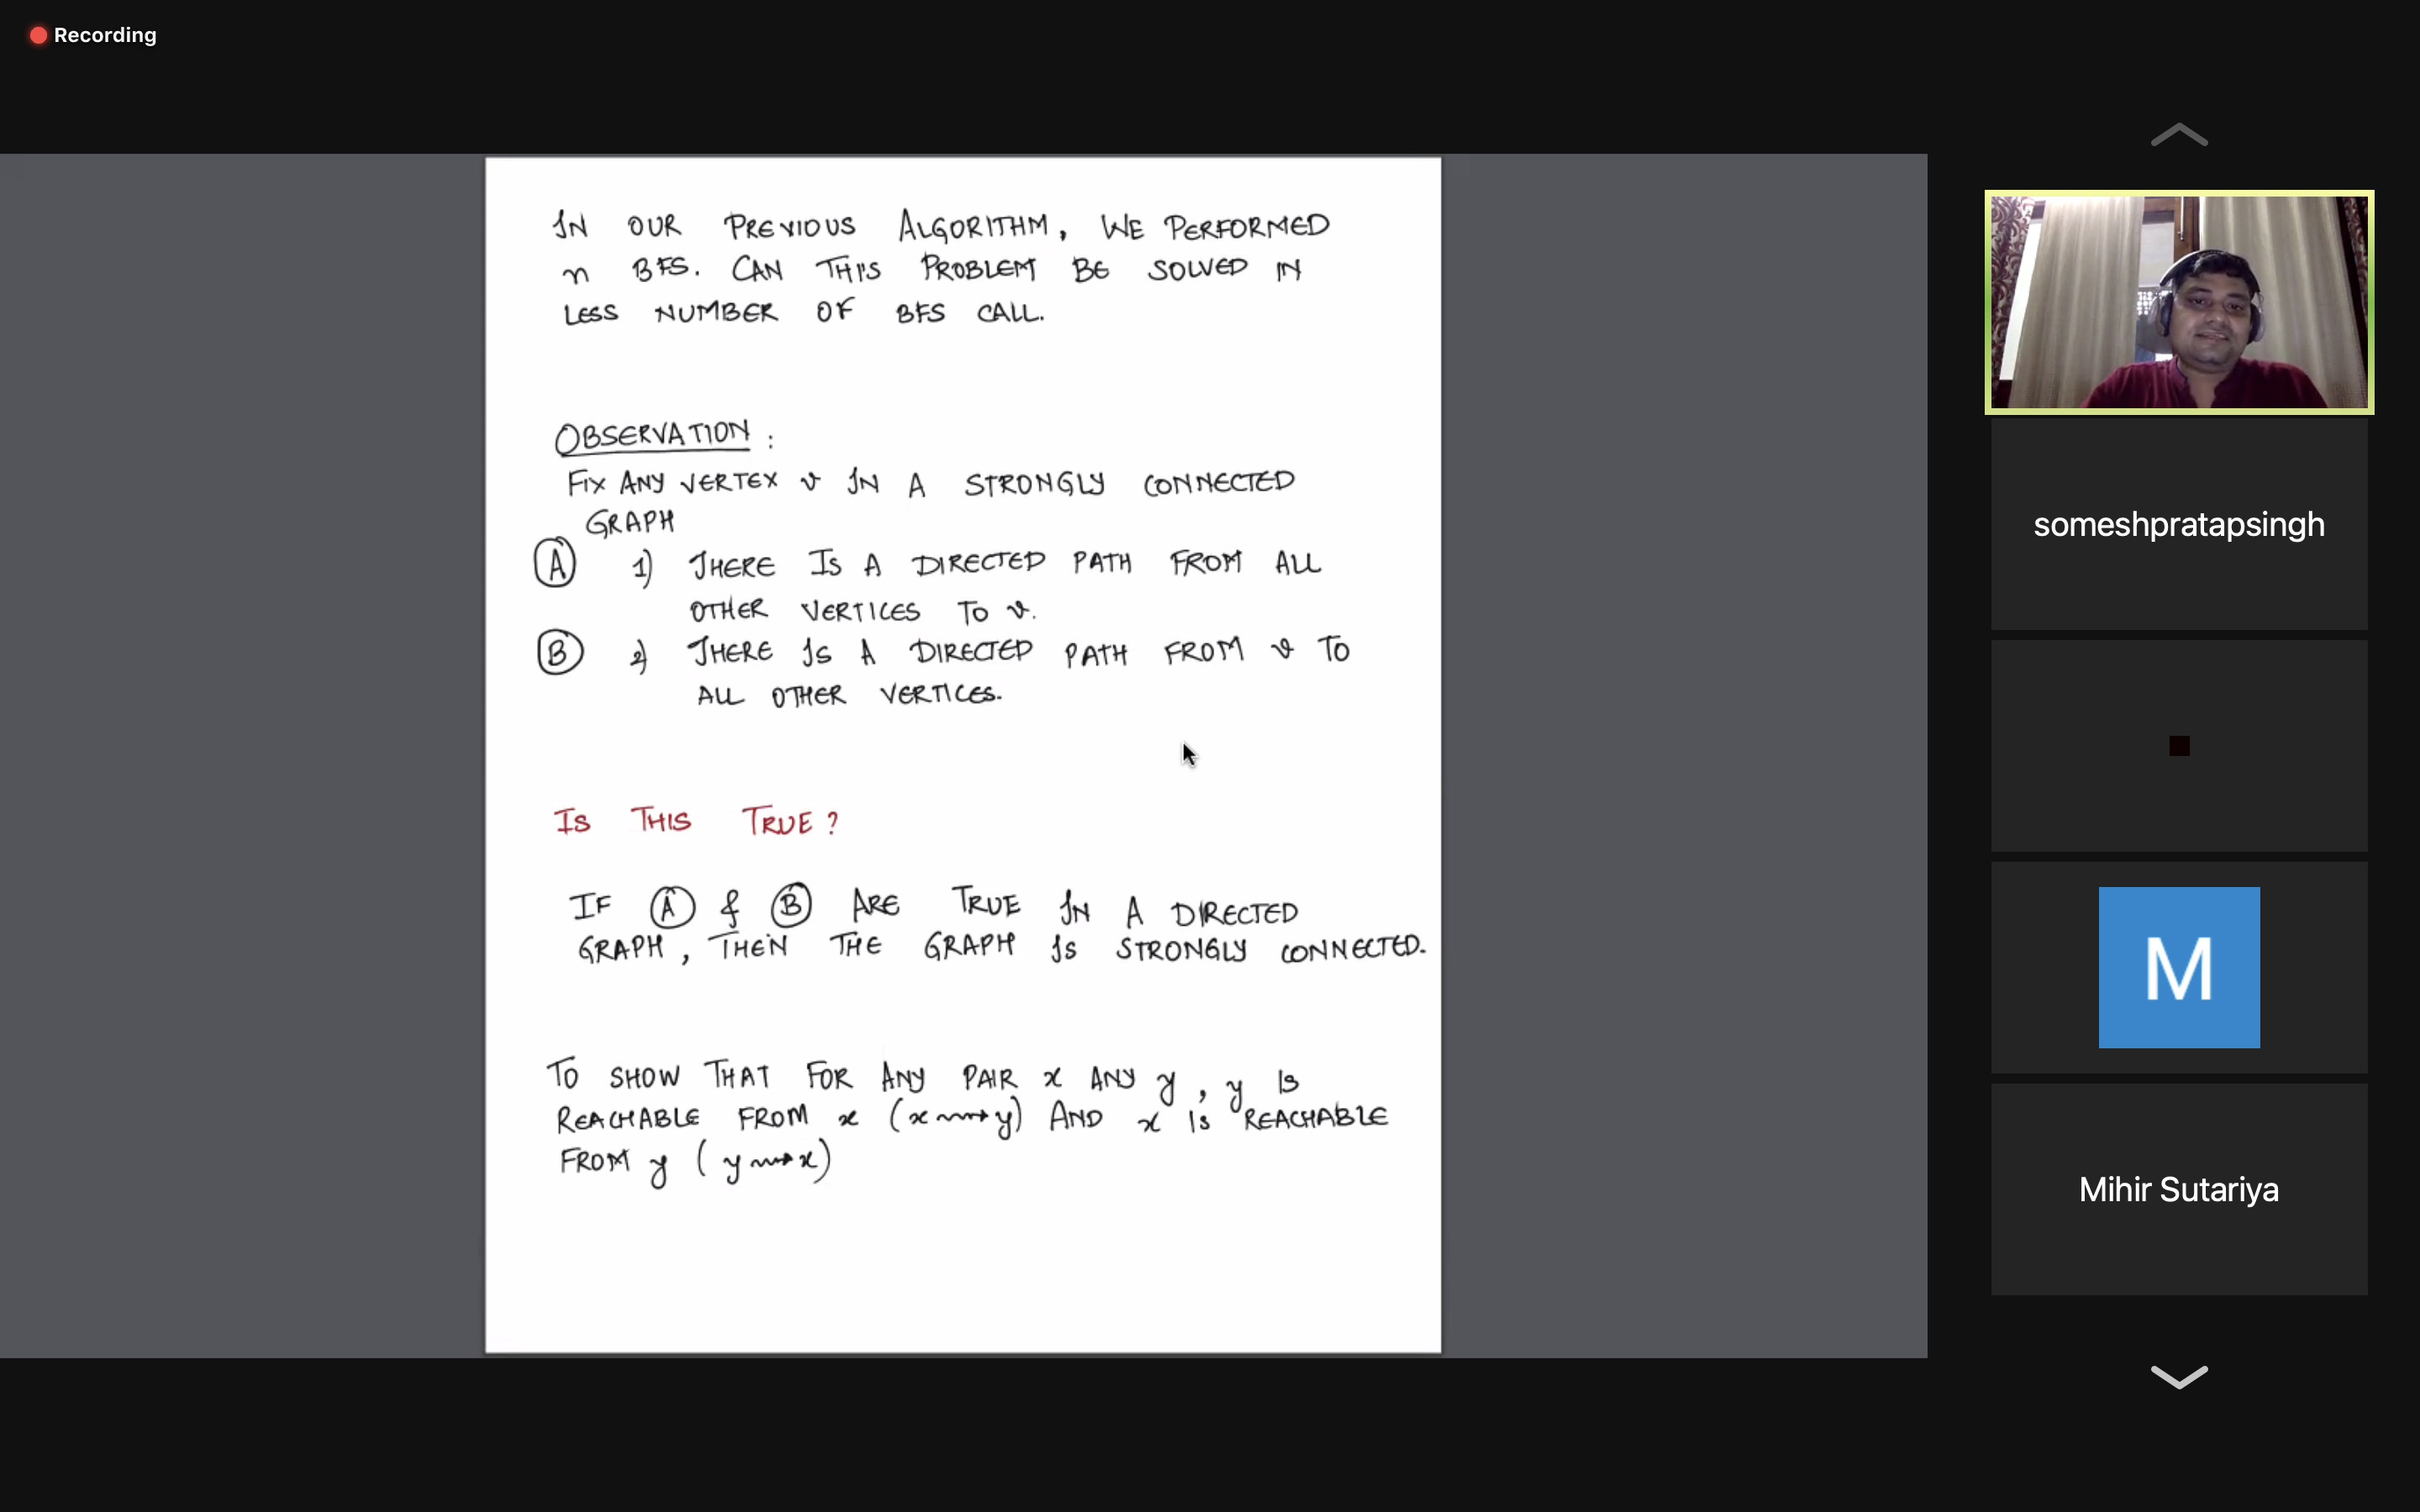 Recording
IN OUR PREVIOUS ALGORITHM, WE PERFORMED
n BFS. CAN THIS PROBLEM BE SOLVED IN
LESS NUMBER OF BFS CALL.
OBSERVATION :
FIX ANY VERTEX v IN A STRONGLY CONNECTED
GRAPH
A 1) THERE IS A DIRECTED PATH FROM ALL
OTHER VERTICES TO v.
B 2) THERE IS A DIRECTED PATH FROM v TO
ALL OTHER VERTICES.
IS THIS TRUE?
IF A & B ARE TRUE IN A DIRECTED
GRAPH, THEN THE GRAPH IS STRONGLY CONNECTED.
TO SHOW THAT FOR ANY PAIR x ANY y, y IS
REACHABLE FROM x (x⇝y) AND x IS REACHABLE
FROM y (y⇝x)
someshpratapsingh
M
Mihir Sutariya